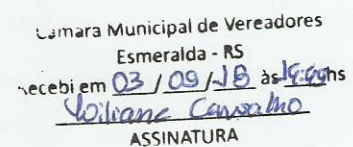 Camara Municipal de Vereadores
Esmeralda - RS
recebi em 03 / 09 / 18 às hs
Carvalho
ASSINATURA